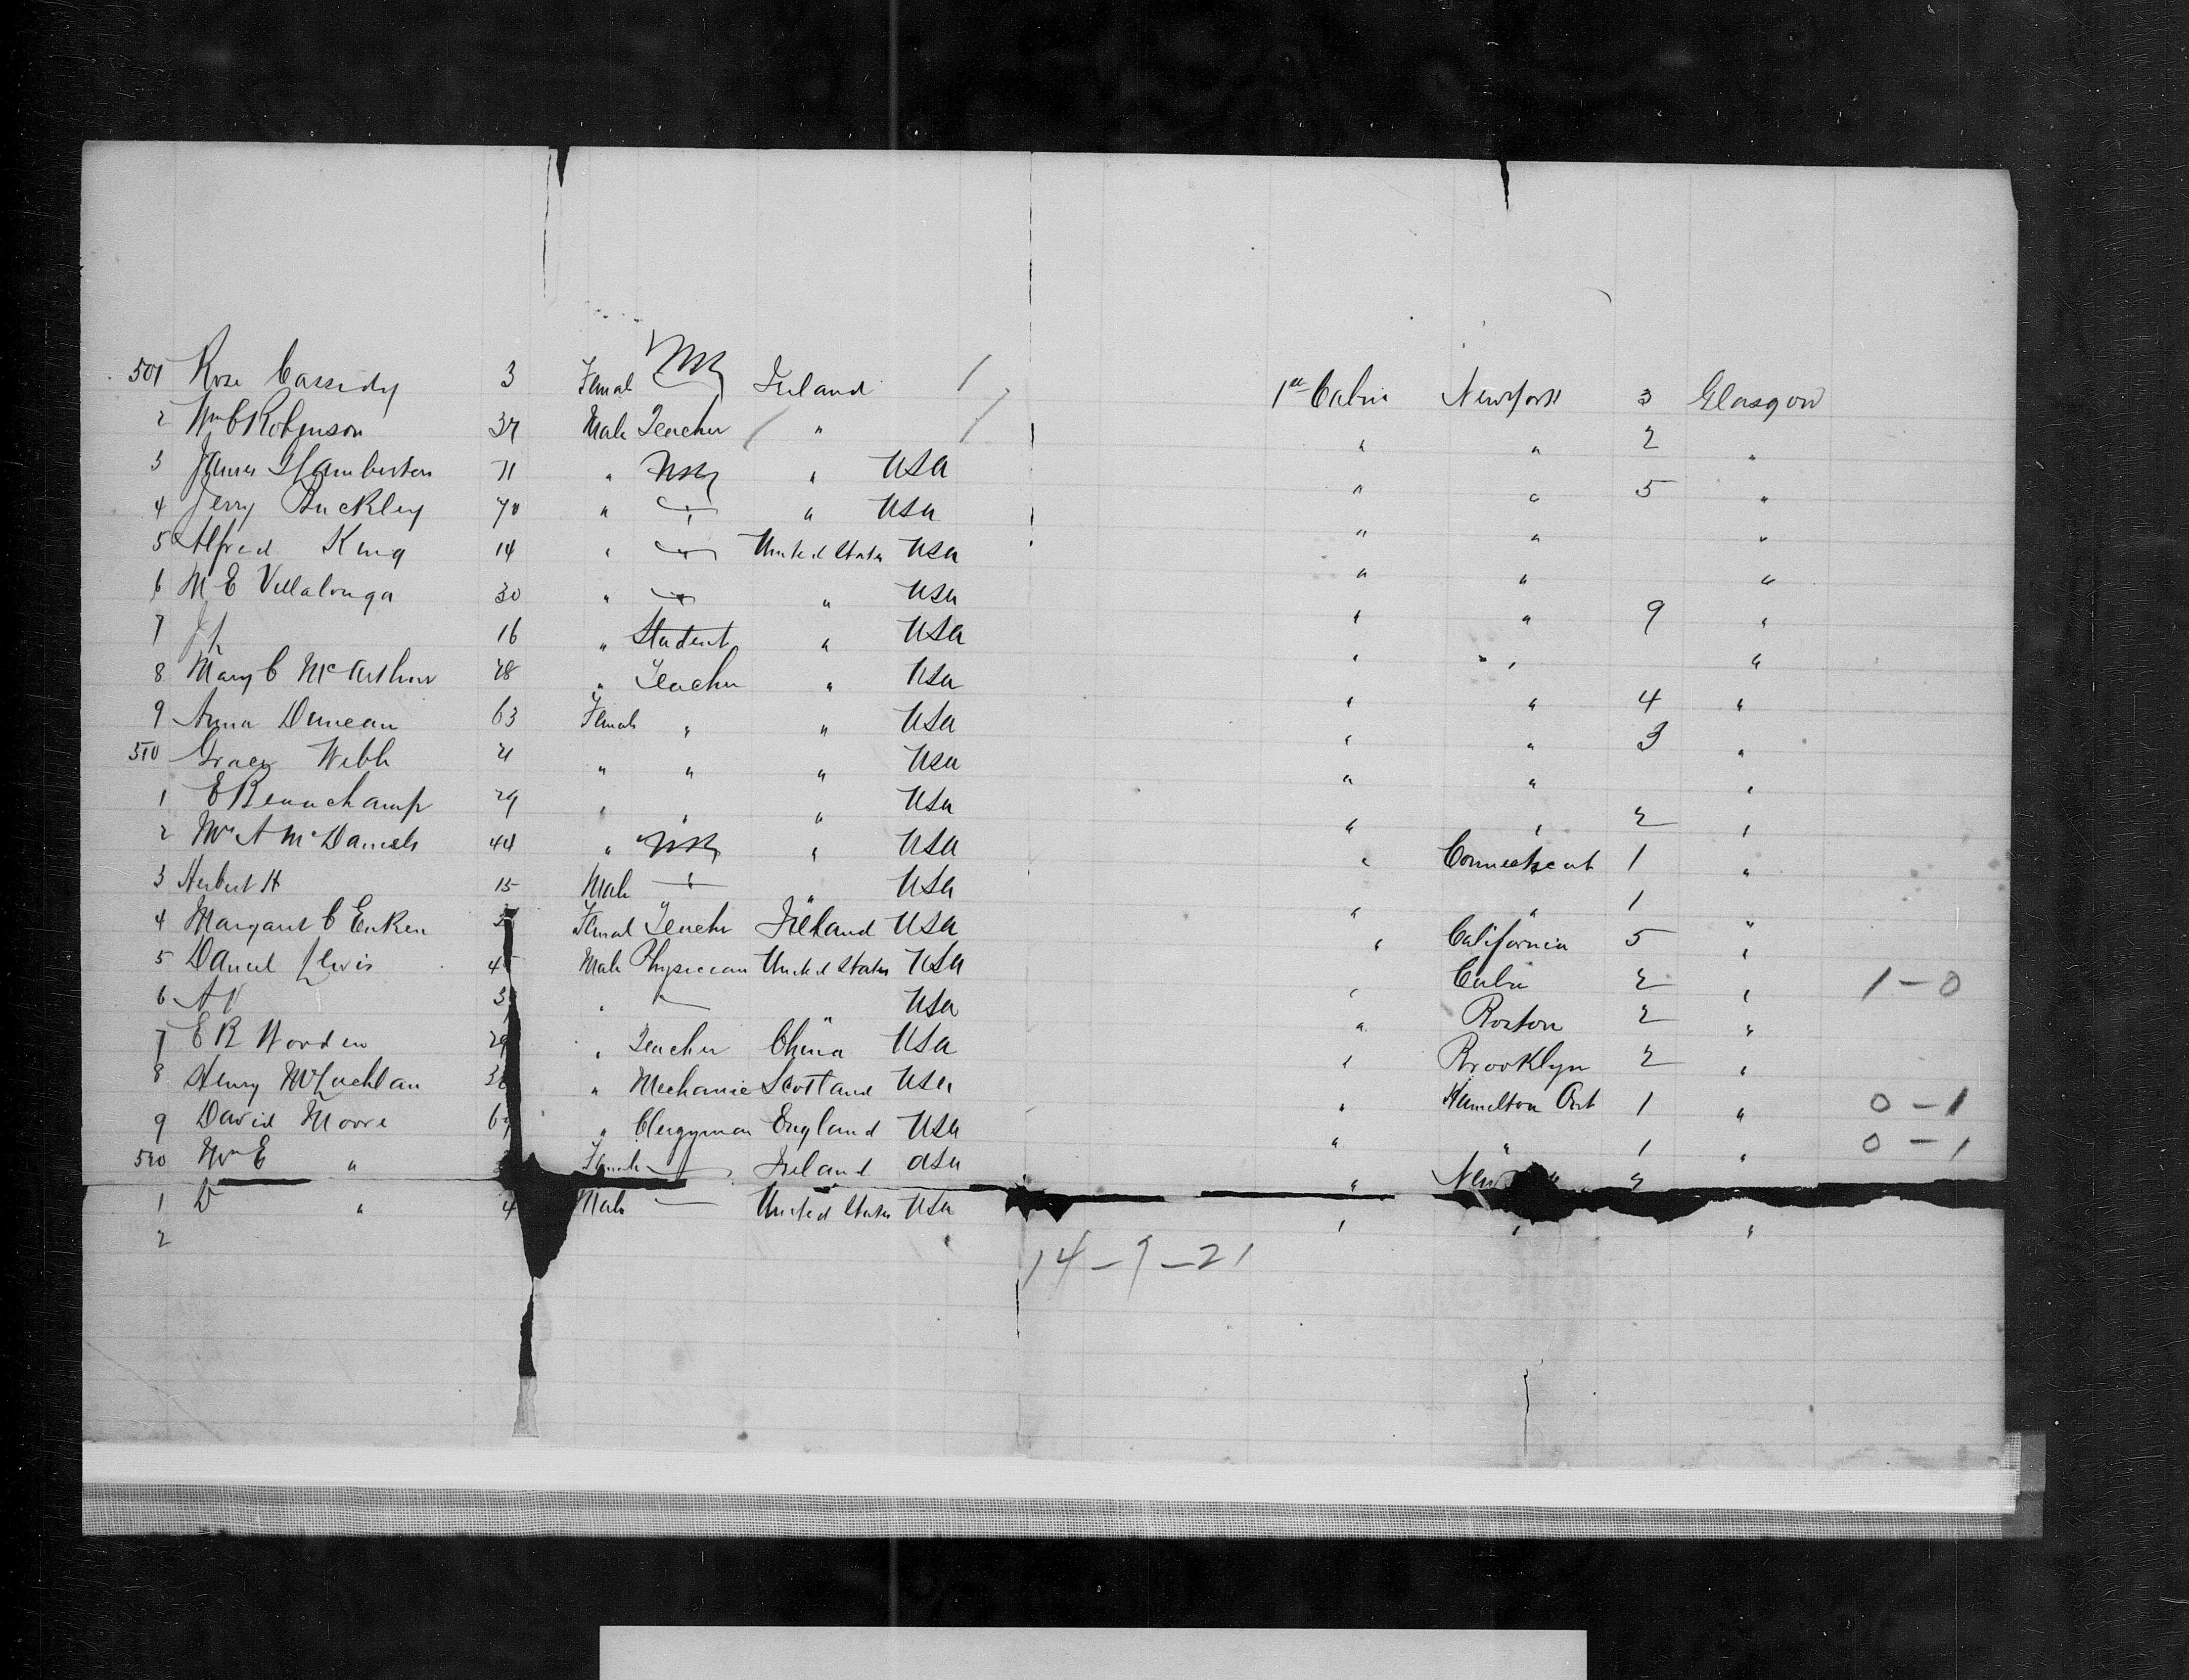 501 Rose Cassidy 3 Female Ireland 1 1st Cabin New York 3 Glasgow
2 Wm C Robinson 37 Male Teacher / " / " " 2 "
3 James Lamberton 71 " " USA " " 5 "
4 Jerry Buckley 70 " " " USA " " "
5 Alfred King 14 " " United States USA " " "
6 M E Villalonga 30 " " " USA " " 9 "
7 16 " Student " USA " " "
8 Mary C McArthur 28 " Teacher " USA " " 4 "
9 Anna Duncan 63 Female " " USA " " 3 "
510 Gracy Webb 21 " " " USA " " "
1 E Beauchamp 29 " " " USA " " 2 "
2 Mrs A McDaniels 44 " " USA " Connecticut 1 "
3 Herbert H 15 Male " " USA " " 1 "
4 Margaret C Female Teacher Ireland USA " California 5 "
5 Daniel Lewis 45 Male Physician United States USA " Cuba 2 " 1-0
6 A V 3 " " USA " Boston 2 "
7 E R Worden 29 " Teacher China USA " Brooklyn 2 "
8 Henry McLachlan 3 " Mechanic Scotland USA " Hamilton Ont 1 " 0-1
9 David Moore 6 " Clergyman England USA " " 1 " 0-1
520 " Female — Ireland USA " New 2
1 D " 4 Male — United States USA " " "
2
14-9-21